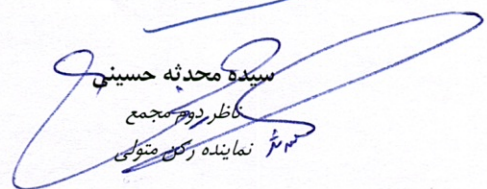 سیده محدثه حسینی
ناظر دوم مجمع
نماینده رکن متولی